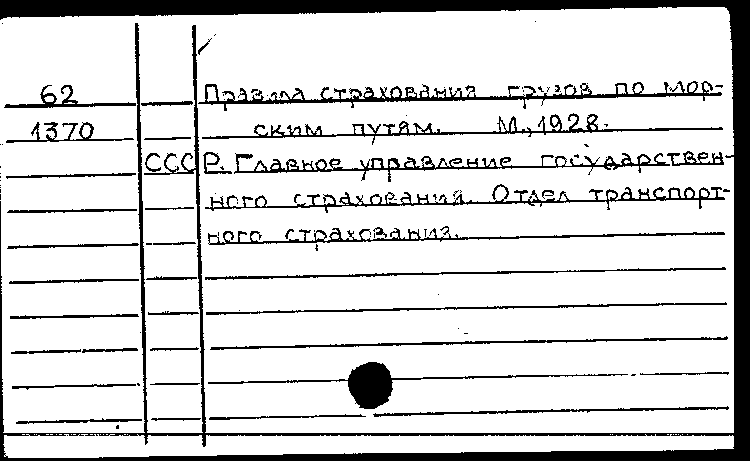 62 Правила страхования грузов по мор-
1370 ским путям. М., 1928.
СССР. Главное управление государствен-
ного страхования. Отдел транспорт-
ного страхования.